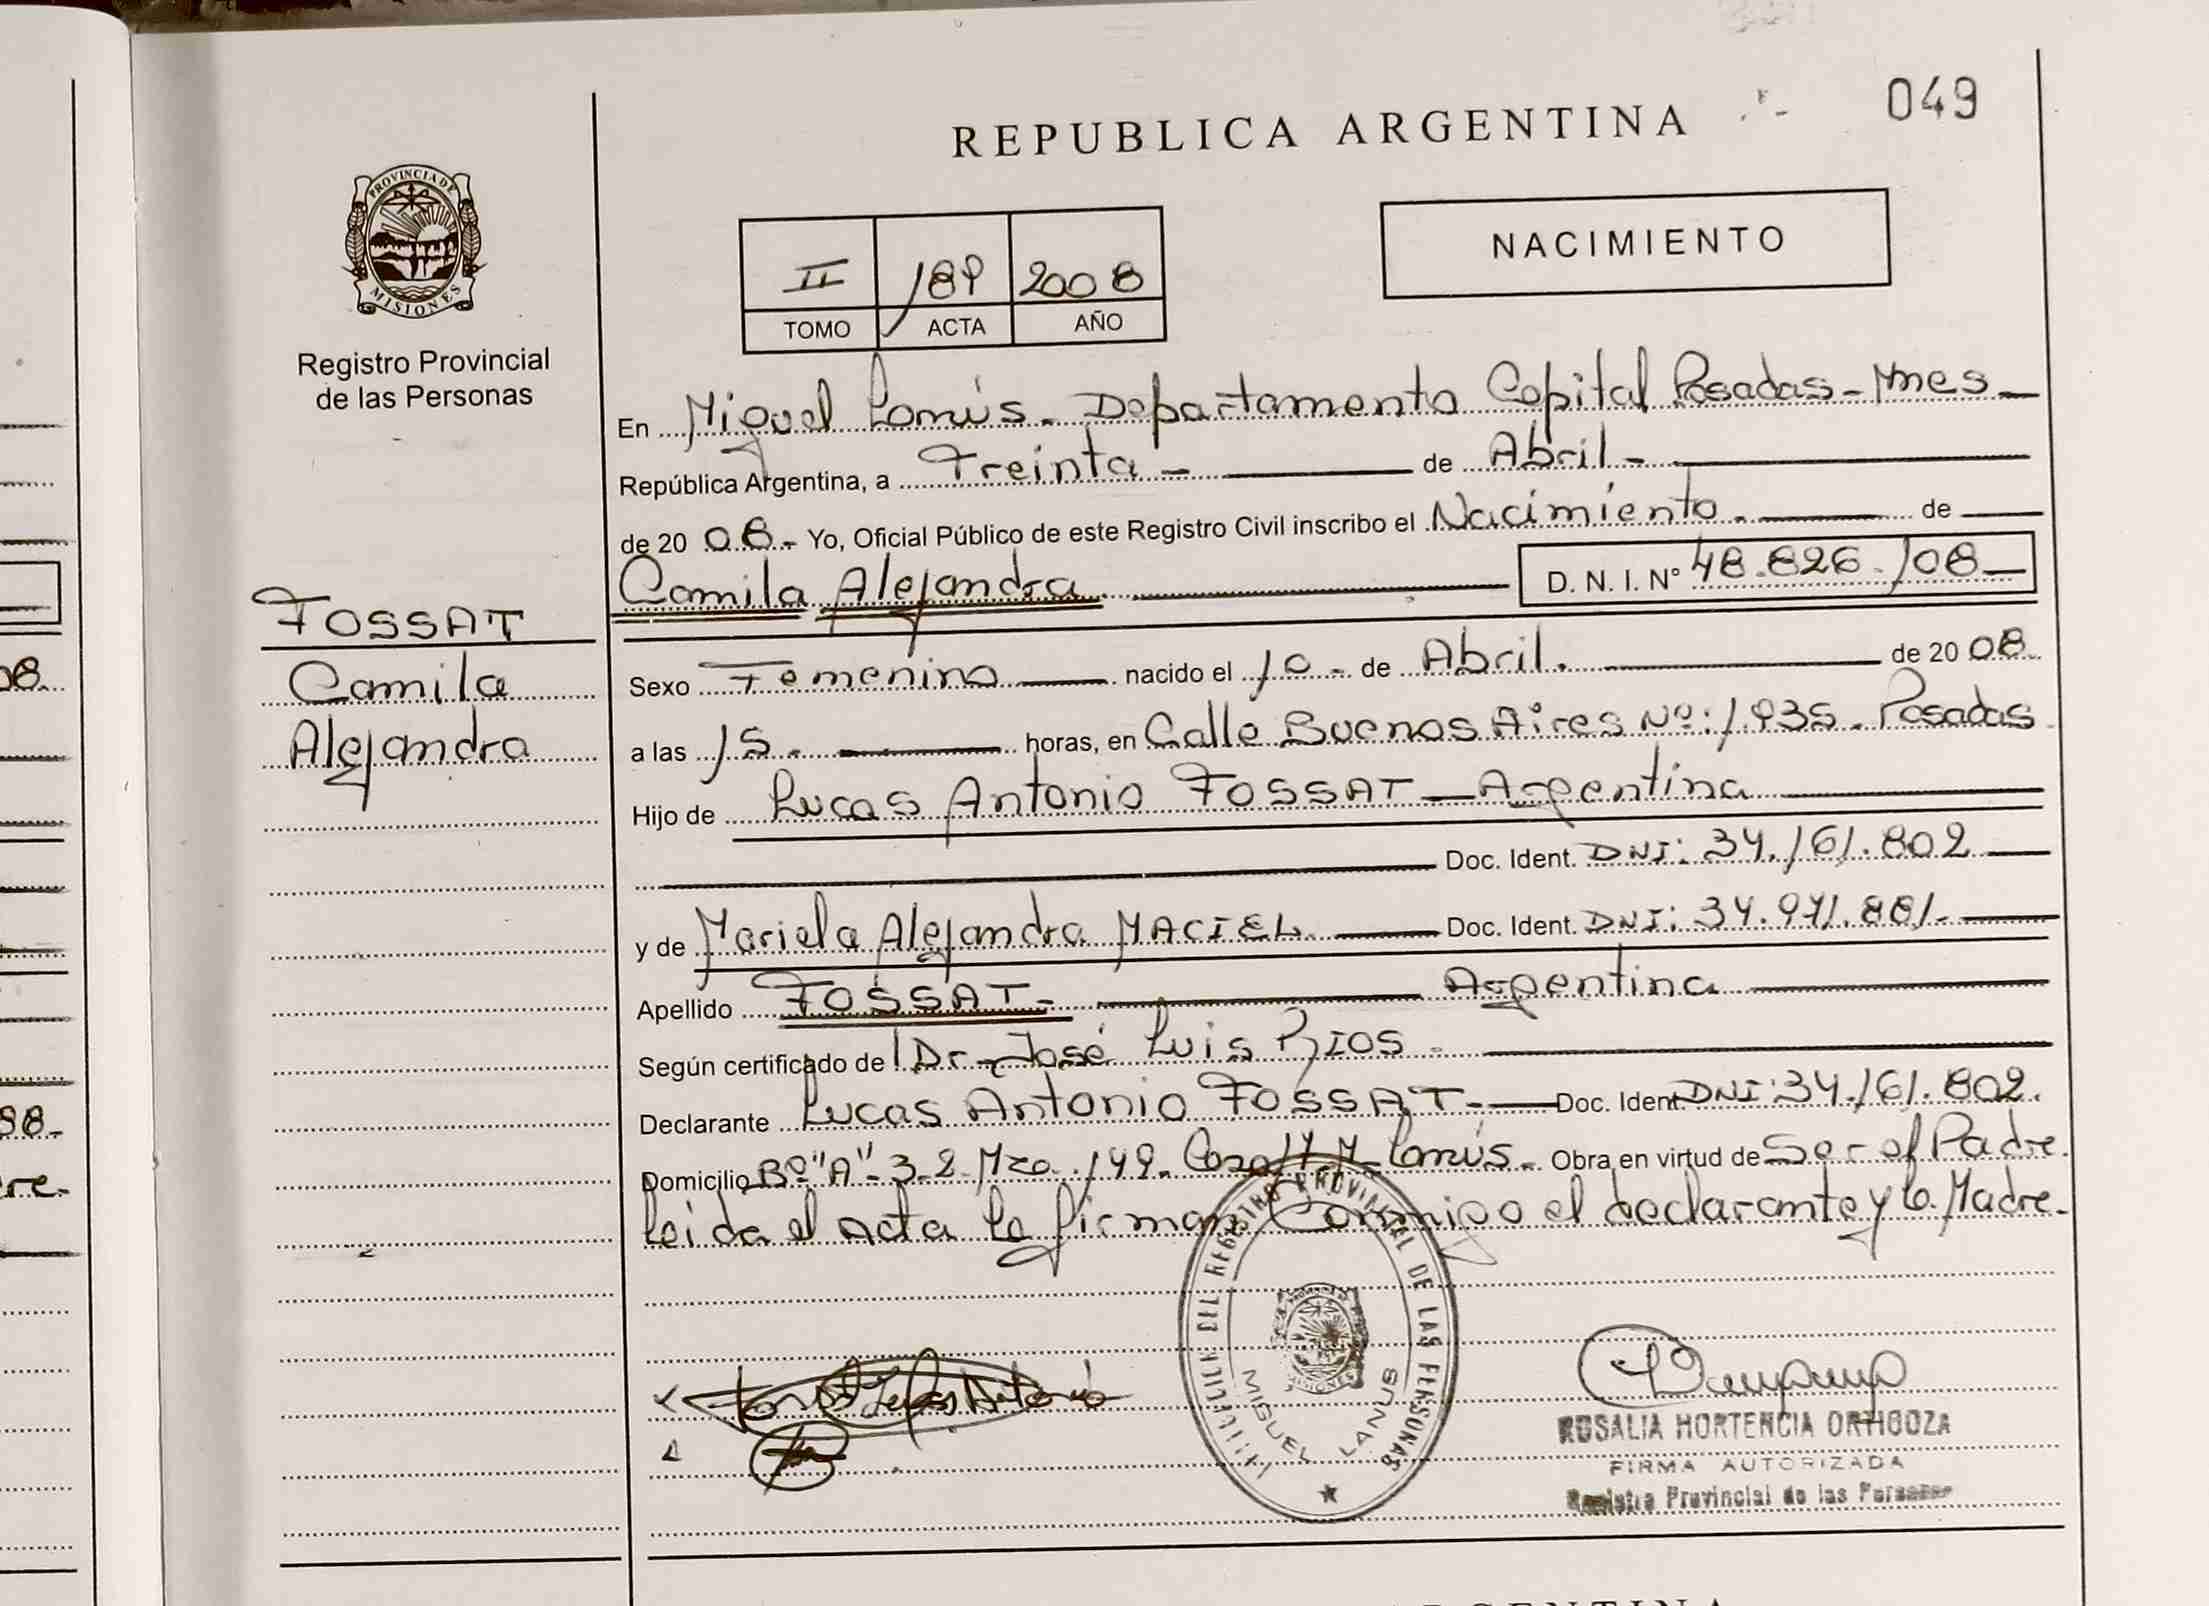 049
REPUBLICA ARGENTINA
PROVINCIA DE
MISIONES
Registro Provincial
de las Personas
II 189 2008
TOMO ACTA AÑO
NACIMIENTO
En Miguel Lanús. Departamento Capital Posadas - Mnes
República Argentina, a Treinta - de Abril -
de 20 08 - Yo, Oficial Público de este Registro Civil inscribo el Nacimiento. de
Camila Alejandra D. N. I. Nº 48.826.108
FOSSAT
Camila
Alejandra
Sexo Femenino nacido el 10 - de Abril. de 20 08
a las 15. horas, en Calle Buenos Aires Nº: 1.935. Posadas
Hijo de Lucas Antonio FOSSAT - Argentina
Doc. Ident. DNI: 34.161.802
y de Mariela Alejandra MACIEL Doc. Ident. DNI: 34.971.881.
Apellido FOSSAT - Argentina
Según certificado del Dr. José Luis RIOS
Declarante Lucas Antonio FOSSAT - Doc. Ident. DNI: 34.161.802.
Domicilio Bº "A" 3-2 Mza. 149. Casa 14 M. Lanús. Obra en virtud de Ser el Padre.
Leida el acta la firman Conmigo el declarante y la Madre.
DEL REGISTRO PROVINCIAL DE LAS PERSONAS
MIGUEL LANUS
MISIONES
ROSALIA HORTENCIA ORTIGOZA
FIRMA AUTORIZADA
Registro Provincial de las Personas
08
88-
re.